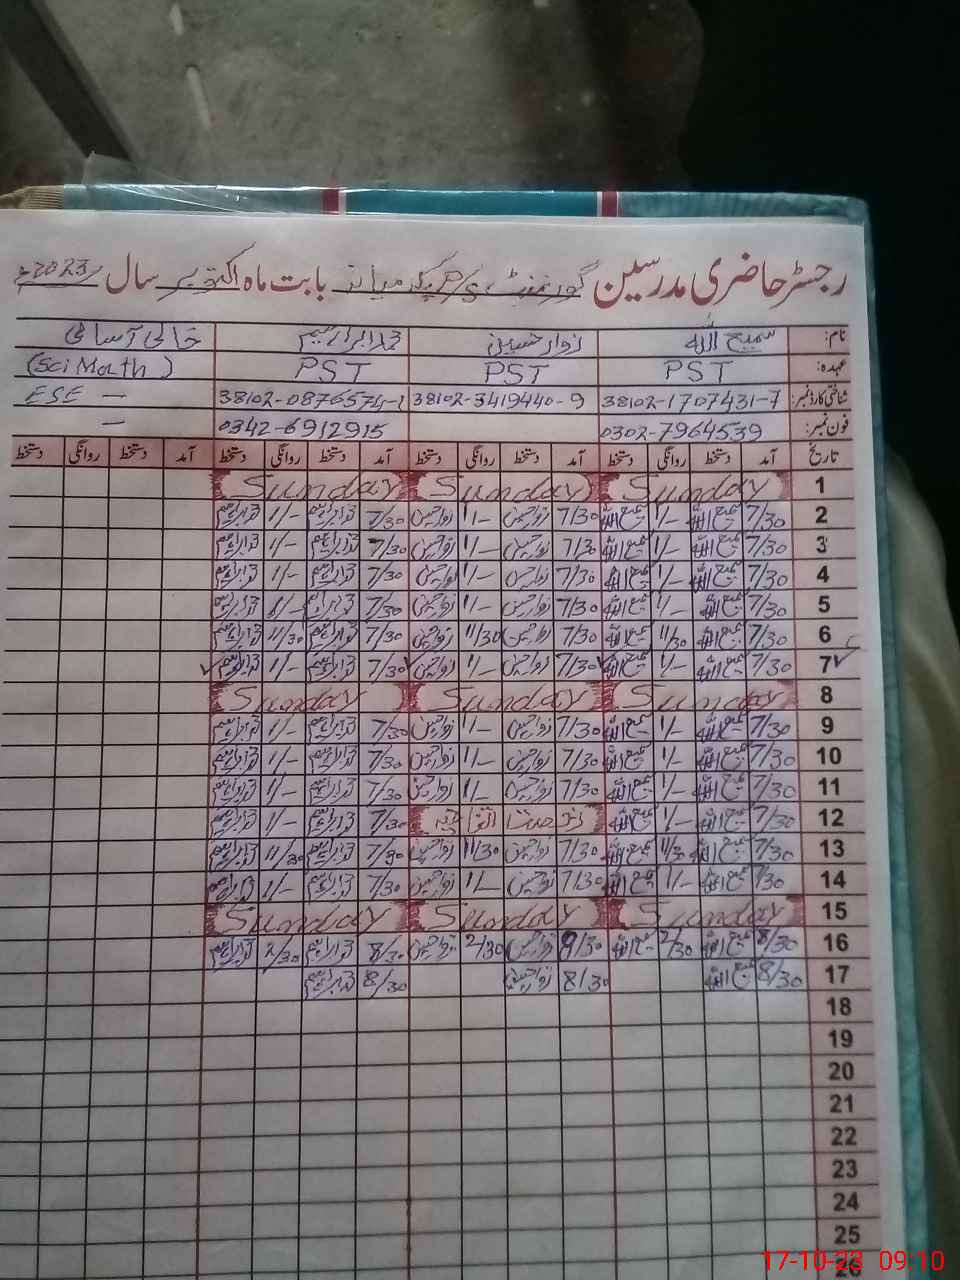 رجسٹر حاضری مدرسین گورنمنٹ P/S بابت ماہ اکتوبر سال 2023ء
نام: سمیع اللہ زوار حسین محمد ابراہیم خالی آسامی
عہدہ: PST PST PST (Sci Math)
شناختی کارڈ نمبر: 38102-1707431-7 38102-3419440-9 38102-0876574-1 ESE —
فون نمبر: 0302-7964539 0342-6912915 —
تاریخ آمد دستخط روانگی دستخط آمد دستخط روانگی دستخط آمد دستخط روانگی دستخط آمد دستخط روانگی دستخط
1 Sunday Sunday Sunday
2 7/30 سمیع اللہ 1/- سمیع اللہ 7/30 زوار حسین 1/- زوار حسین 7/30 محمد ابراہیم 1/- محمد ابراہیم
3 7/30 سمیع اللہ 1/- سمیع اللہ 7/30 زوار حسین 1/- زوار حسین 7/30 محمد ابراہیم 1/- محمد ابراہیم
4 7/30 سمیع اللہ 1/- سمیع اللہ 7/30 زوار حسین 1/- زوار حسین 7/30 محمد ابراہیم 1/- محمد ابراہیم
5 7/30 سمیع اللہ 1/- سمیع اللہ 7/30 زوار حسین 1/- زوار حسین 7/30 محمد ابراہیم 1/- محمد ابراہیم
6 7/30 سمیع اللہ 11/30 سمیع اللہ 7/30 زوار حسین 11/30 زوار حسین 7/30 محمد ابراہیم 11/30 محمد ابراہیم
7 7/30 سمیع اللہ 1/- سمیع اللہ 7/30 زوار حسین 1/- زوار حسین 7/30 محمد ابراہیم 1/- محمد ابراہیم
8 Sunday Sunday Sunday
9 7/30 سمیع اللہ 1/- سمیع اللہ 7/30 زوار حسین 1/- زوار حسین 7/30 محمد ابراہیم 1/- محمد ابراہیم
10 7/30 سمیع اللہ 1/- سمیع اللہ 7/30 زوار حسین 1/- زوار حسین 7/30 محمد ابراہیم 1/- محمد ابراہیم
11 7/30 سمیع اللہ 1/- سمیع اللہ 7/30 زوار حسین 1/- زوار حسین 7/30 محمد ابراہیم 1/- محمد ابراہیم
12 7/30 سمیع اللہ 1/- سمیع اللہ رخصت اتفاقیہ 7/30 محمد ابراہیم 1/- محمد ابراہیم
13 7/30 سمیع اللہ 11/30 سمیع اللہ 7/30 زوار حسین 11/30 زوار حسین 7/30 محمد ابراہیم 11/30 محمد ابراہیم
14 7/30 سمیع اللہ 1/- سمیع اللہ 7/30 زوار حسین 1/- زوار حسین 7/30 محمد ابراہیم 1/- محمد ابراہیم
15 Sunday Sunday Sunday
16 8/30 سمیع اللہ 2/30 سمیع اللہ 8/30 زوار حسین 2/30 زوار حسین 8/30 محمد ابراہیم 2/30 محمد ابراہیم
17 8/30 سمیع اللہ 8/30 زوار حسین 8/30 محمد ابراہیم
18
19
20
21
22
23
24
25
26
17-10-23 09:10